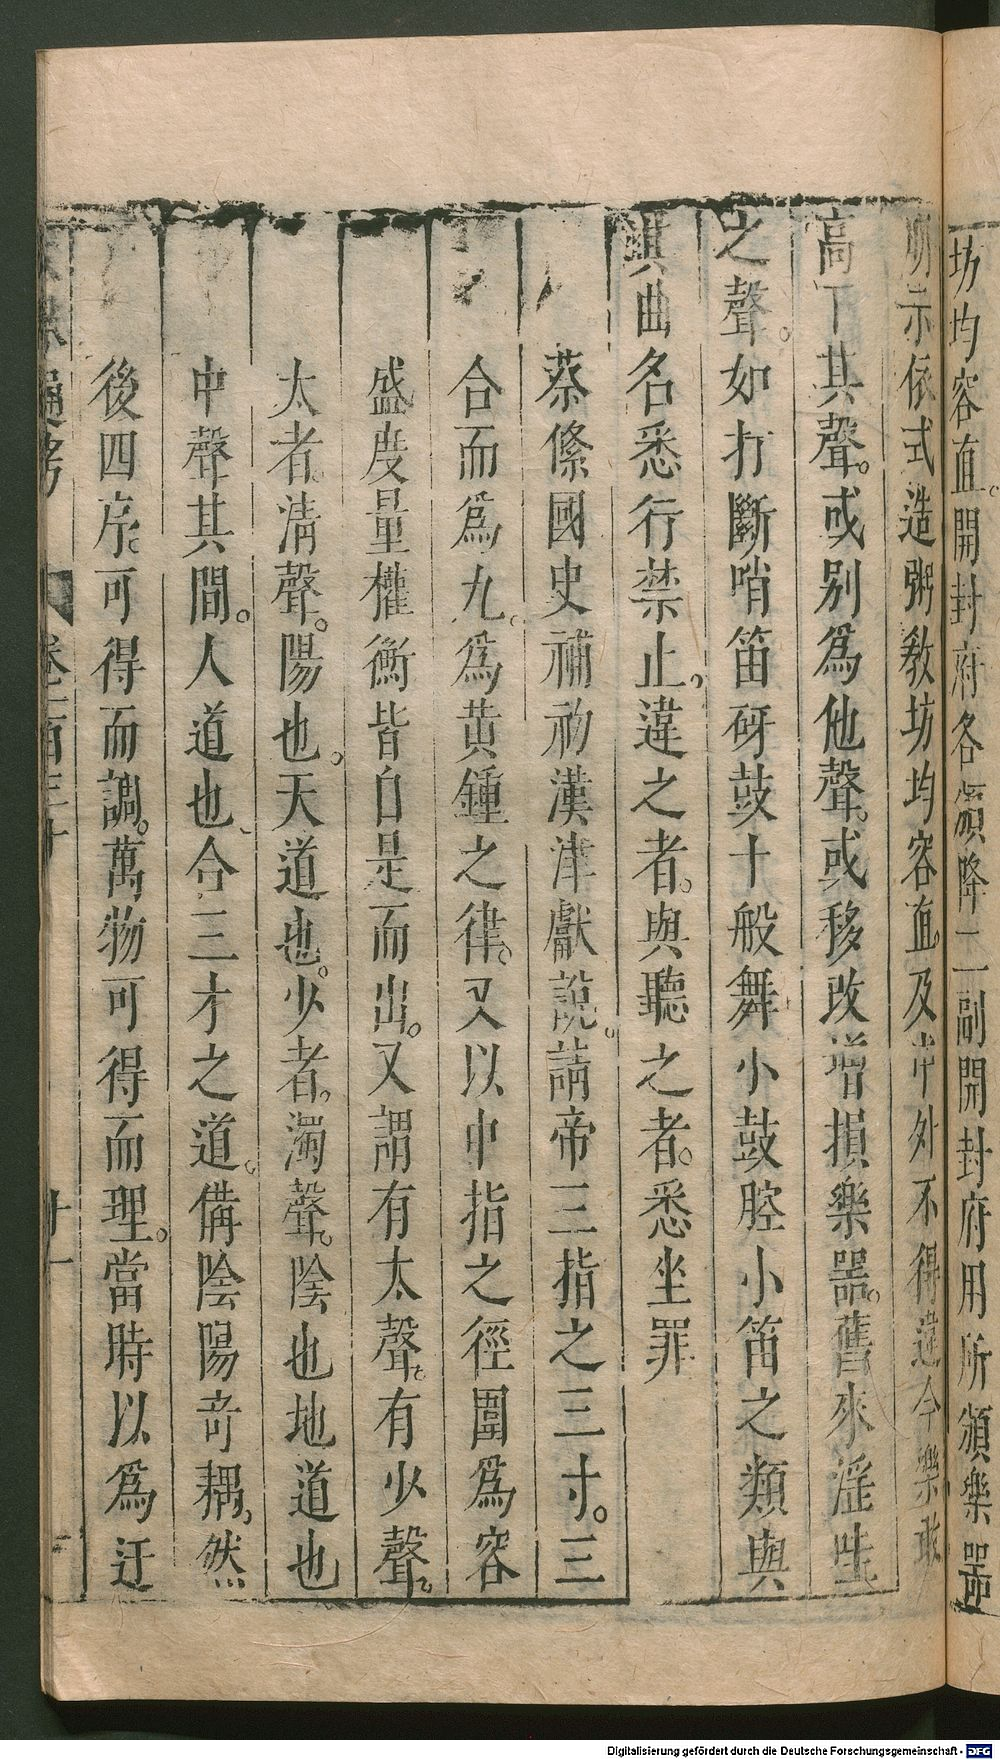 坊均容直。開封府各頒降一二副開封府用所頒樂器
明示依式造粥教坊均容直及中外不得違今樂敢
高下其聲。或别爲他聲。或移改增損樂器。舊來淫哇
之聲。如打斷哨笛砑鼓十般舞小鼓腔小笛之類與
其曲名悉行禁止。違之者。與聽之者。悉坐罪
蔡絛國史補初漢津獻說。請帝三指之三寸。三
合而爲九。爲黄鍾之律。又以中指之徑圍爲容
盛度量權衡皆自是而出。又謂有太聲。有少聲。
太者。清聲。陽也。天道也。少者。濁聲。陰也地道也
中聲其間。人道也、合三才之道。備陰陽竒耦。然
後四序。可得而調。萬物可得而理。當時以爲迂
通考
卷一百三十
廿一
Digitalisierung gefördert durch die Deutsche Forschungsgemeinschaft - DFG